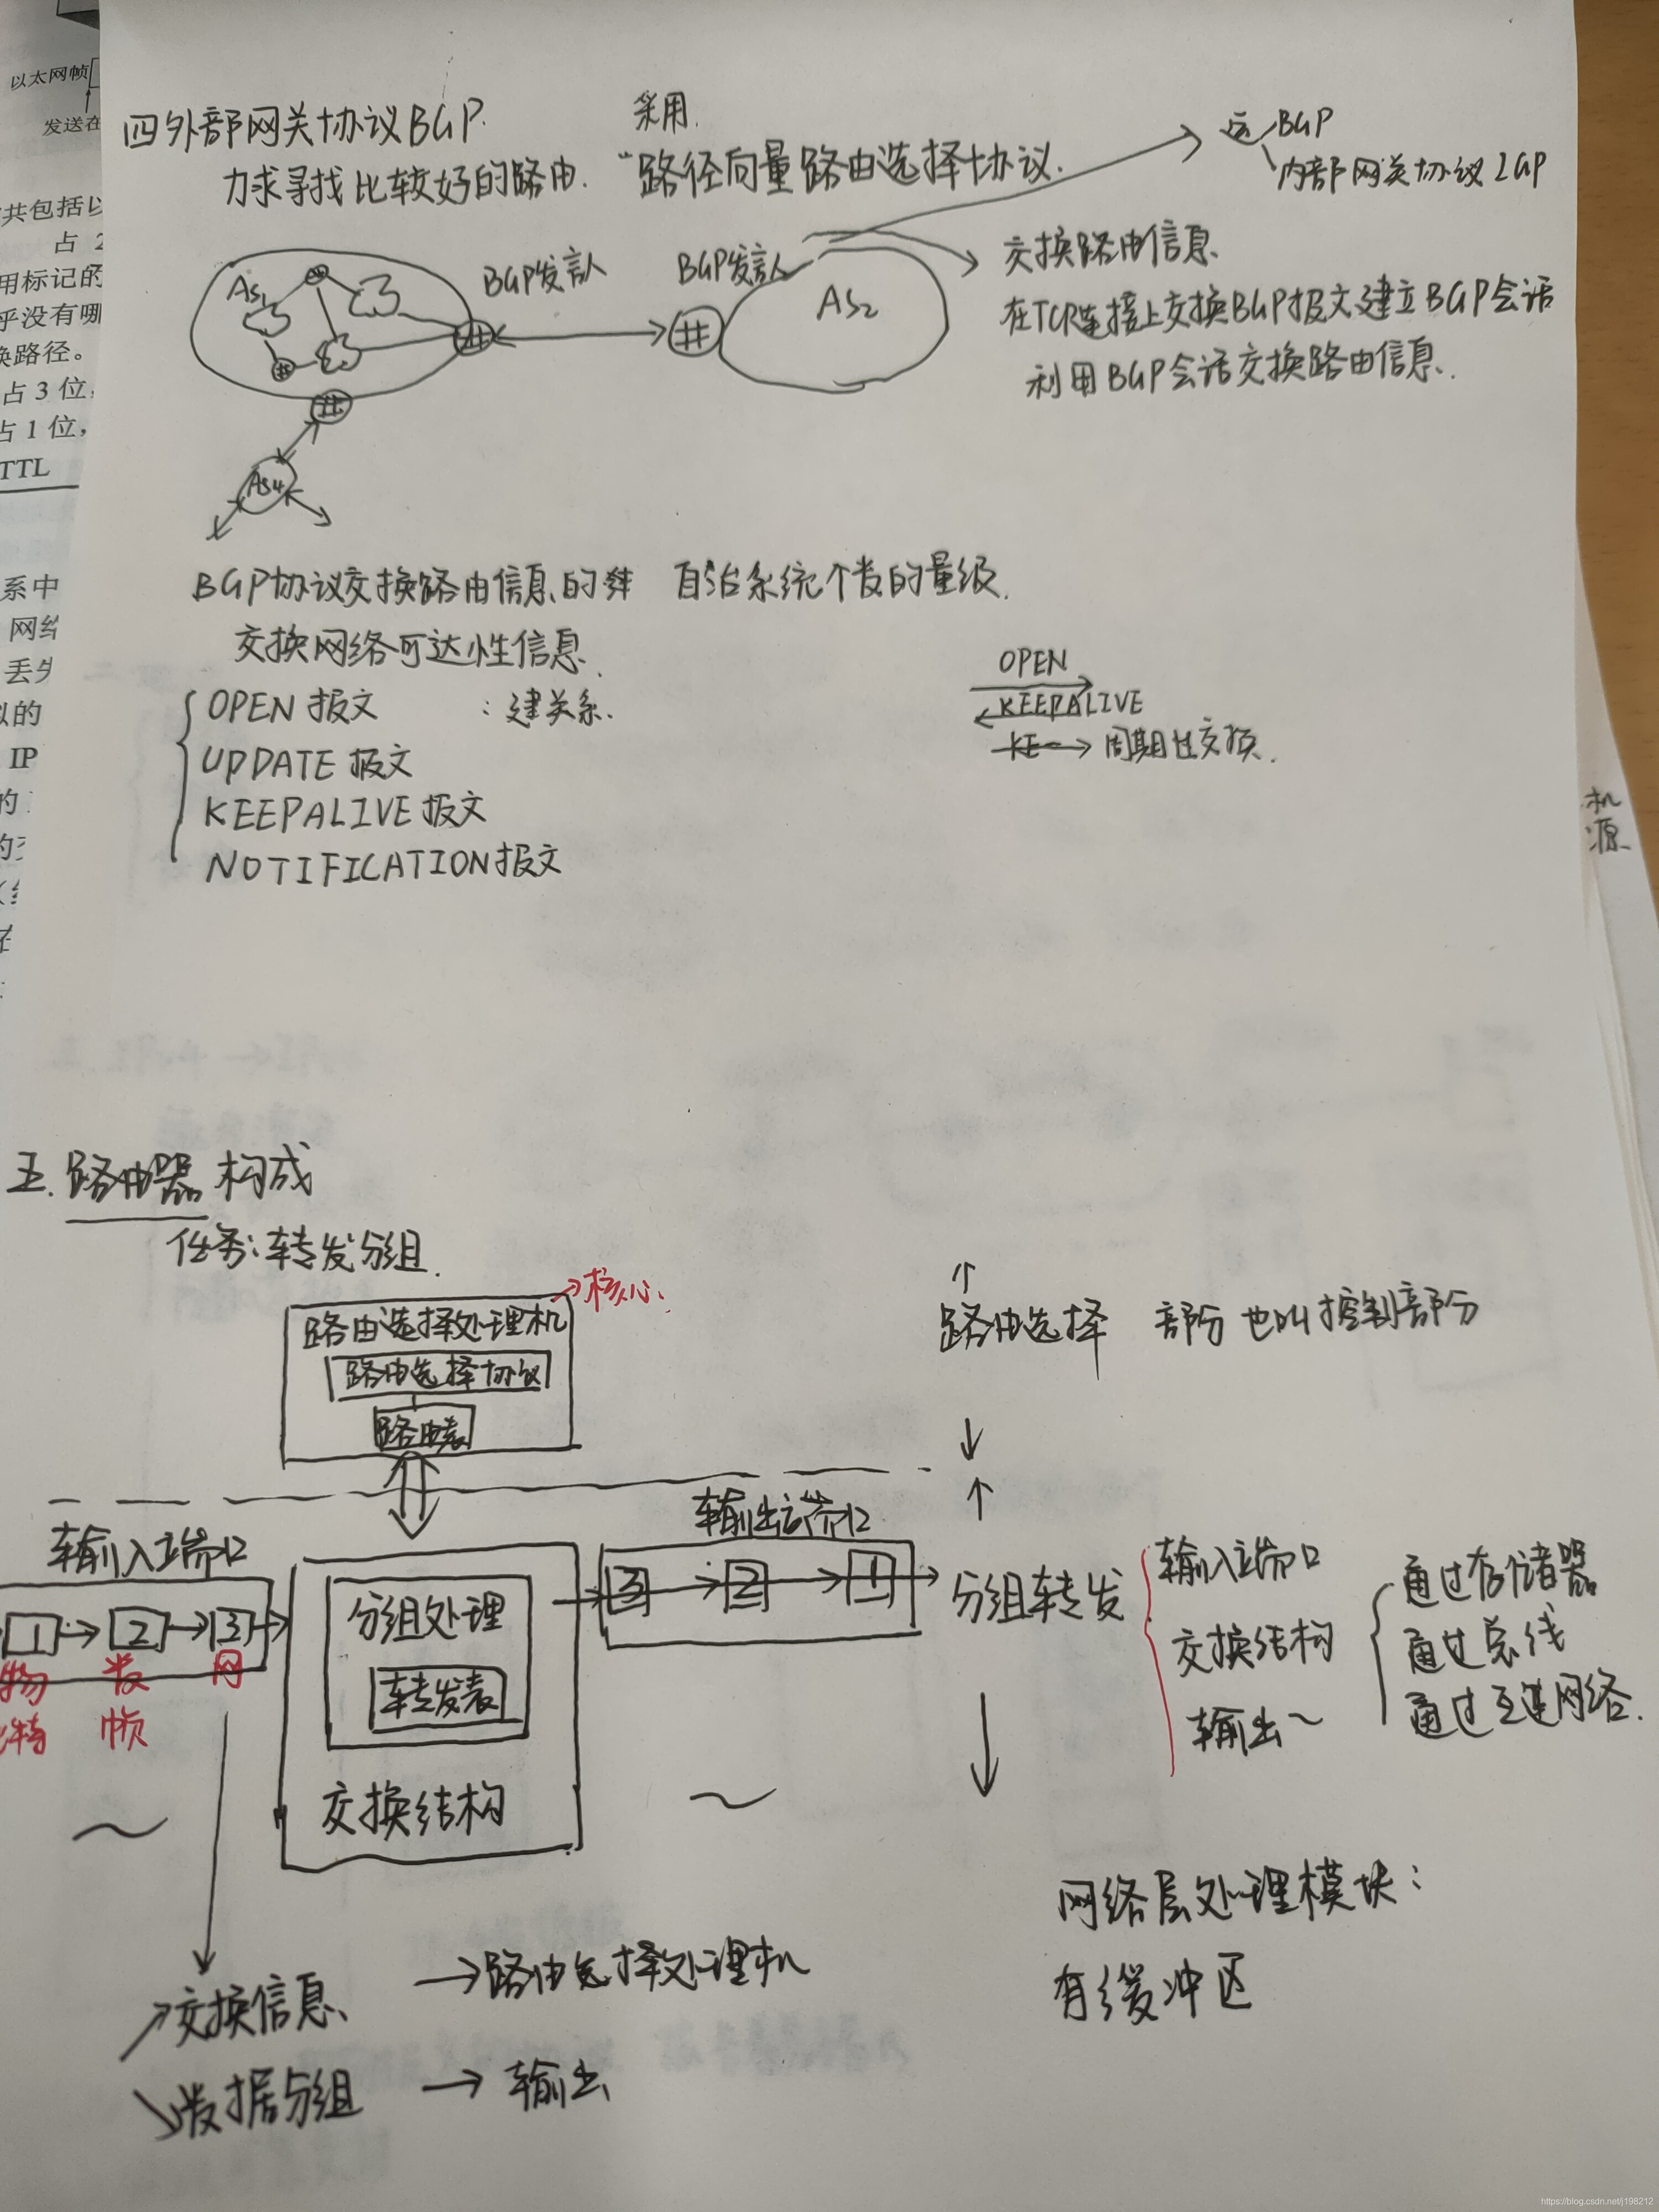 以太网帧
发送在
共包括以
占 2
用标记的
乎没有哪
换路径。
占 3 位,
占 1 位,
TTL
系中
网络
丢失
以的
IP
的
四外部网关协议BGP.
力求寻找比较好的路由. 采用 "路径向量路由选择协议.
运 BGP
内部网关协议IGP
AS1
BGP发言人
BGP发言人
AS2
AS4
交换路由信息.
在TCP连接上交换BGP报文建立BGP会话
利用BGP会话交换路由信息.
BGP协议交换路由信息的 自治系统个数的量级.
交换网络可达性信息.
OPEN 报文 : 建关系.
UPDATE 报文
KEEPALIVE 报文
NOTIFICATION报文
OPEN
KEEPALIVE
KE 周期性交换.
机
源
五.路由器构成
任务:转发分组.
路由选择处理机
核心.
路由选择协议
路由表
路由选择 部分 也叫控制部分
输入端口
1 2 3
物 数 网
比特 帧
分组处理
转发表
交换结构
输出端口
3 2 1
分组转发
输入端口
交换结构
输出~
通过存储器
通过总线
通过互连网络.
网络层处理模块:
有缓冲区
交换信息 → 路由选择处理机
数据分组 → 输出
https://blog.csdn.net/j198212